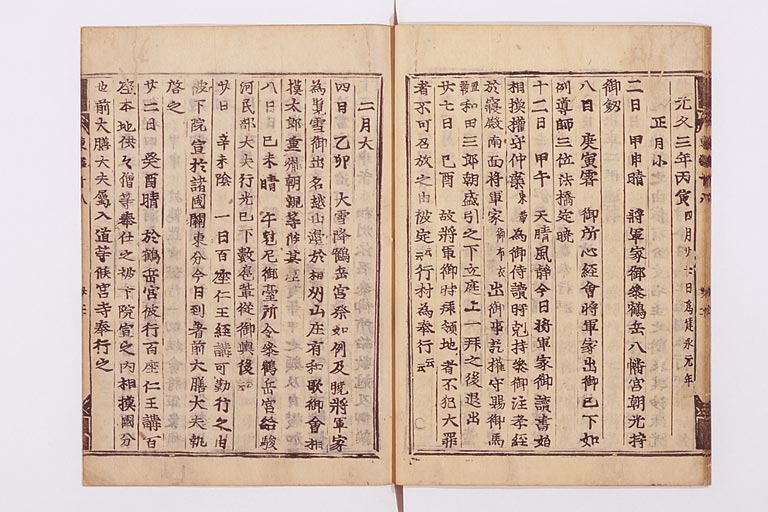 元久三年丙寅四月廿七日為建永元年
正月小
二日 甲申晴 將軍家御參鶴岳八幡宮朝光持
御釼
八日 庚寅霽 御所心經會將軍家出御已下如
例導師三位法橋定曉
十二日 甲午 天晴風静今日將軍家御讀書始
相模權守仲業束帯為御侍讀時剋持參御注孝經
於寢殿南面將軍家御布衣出御事訖權守賜御馬
和田三郎朝盛引之下立庭上一拜之後退出
廿七日 己酉 故將軍御時拜領地者不犯大罪
者不可召放之由被定云々行村為奉行云々
二月大
四日 乙卯 大雪降鶴岳宮祭如例及晚將軍家
為覧雪御出名越山邊於相州山庄有和歌御會相
摸太郎重胤朝親等候其座
八日 己未晴 午尅尼御臺所令參鶴岳宮給駿
河民部大夫行光已下數輩從御輿後云々
廿日 辛未陰 一日百座仁王經講可勤行之由
被下院宣於諸國關東分今日到著前大膳大夫執
啓之
廿二日 癸酉晴 於鶴岳宮被行百座仁王講百
座本地供々僧等奉仕之被下院宣之内相摸國分
也前大膳大夫屬入道等候宮寺奉行之